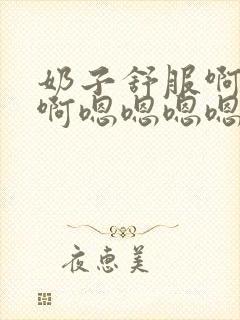 奶子舒服啊
啊嗯嗯嗯嗯
夜惠美